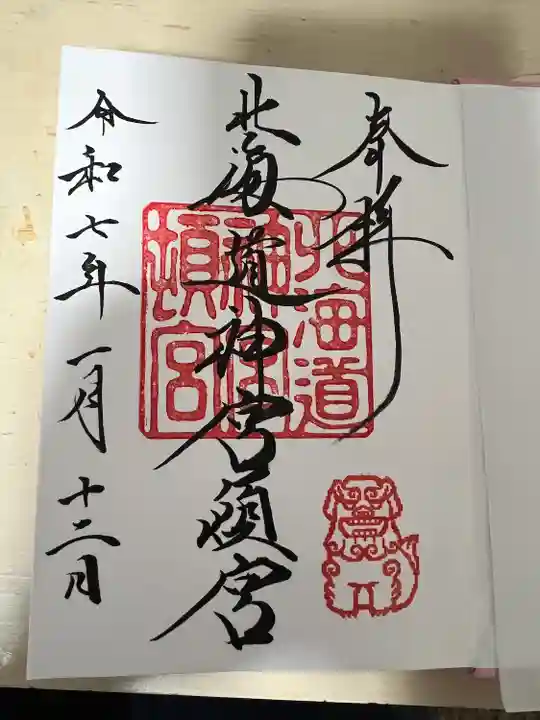 奉拝
北海道神宮頓宮
北海道
神宮
頓宮
令和七年一月十二日